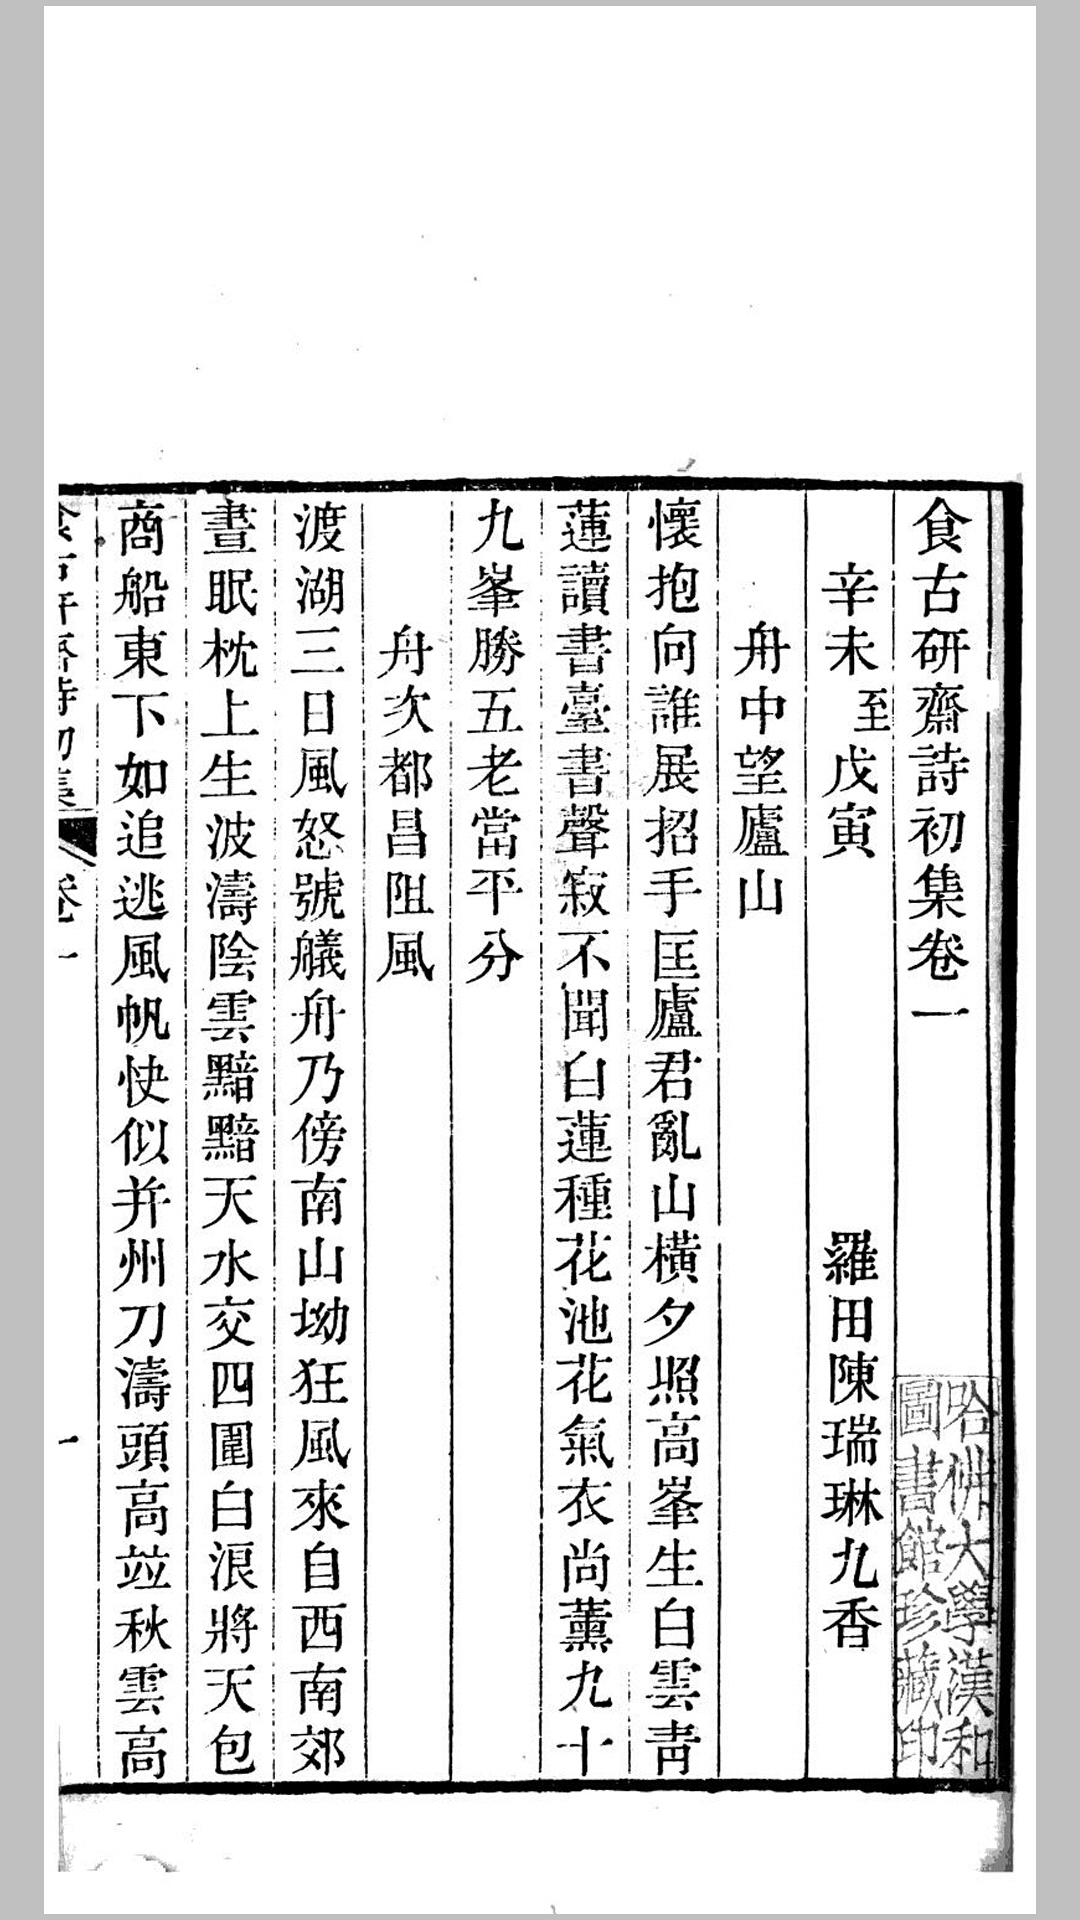 食古研齋詩初集卷一
辛未至戊寅　羅田陳瑞琳九香
舟中望廬山
懷抱向誰展招手匡廬君亂山橫夕照高峯生白雲青
蓮讀書臺書聲寂不聞白蓮種花池花氣衣尚薰九十
九峯勝五老當平分
舟次都昌阻風
渡湖三日風怒號艤舟乃傍南山坳狂風來自西南郊
晝眠枕上生波濤陰雲黯黯天水交四圍白浪將天包
商船東下如追逃風帆快似并州刀濤頭高竝秋雲高
食古研齋詩初集　卷一　一
哈佛大學漢和
圖書館珍藏印